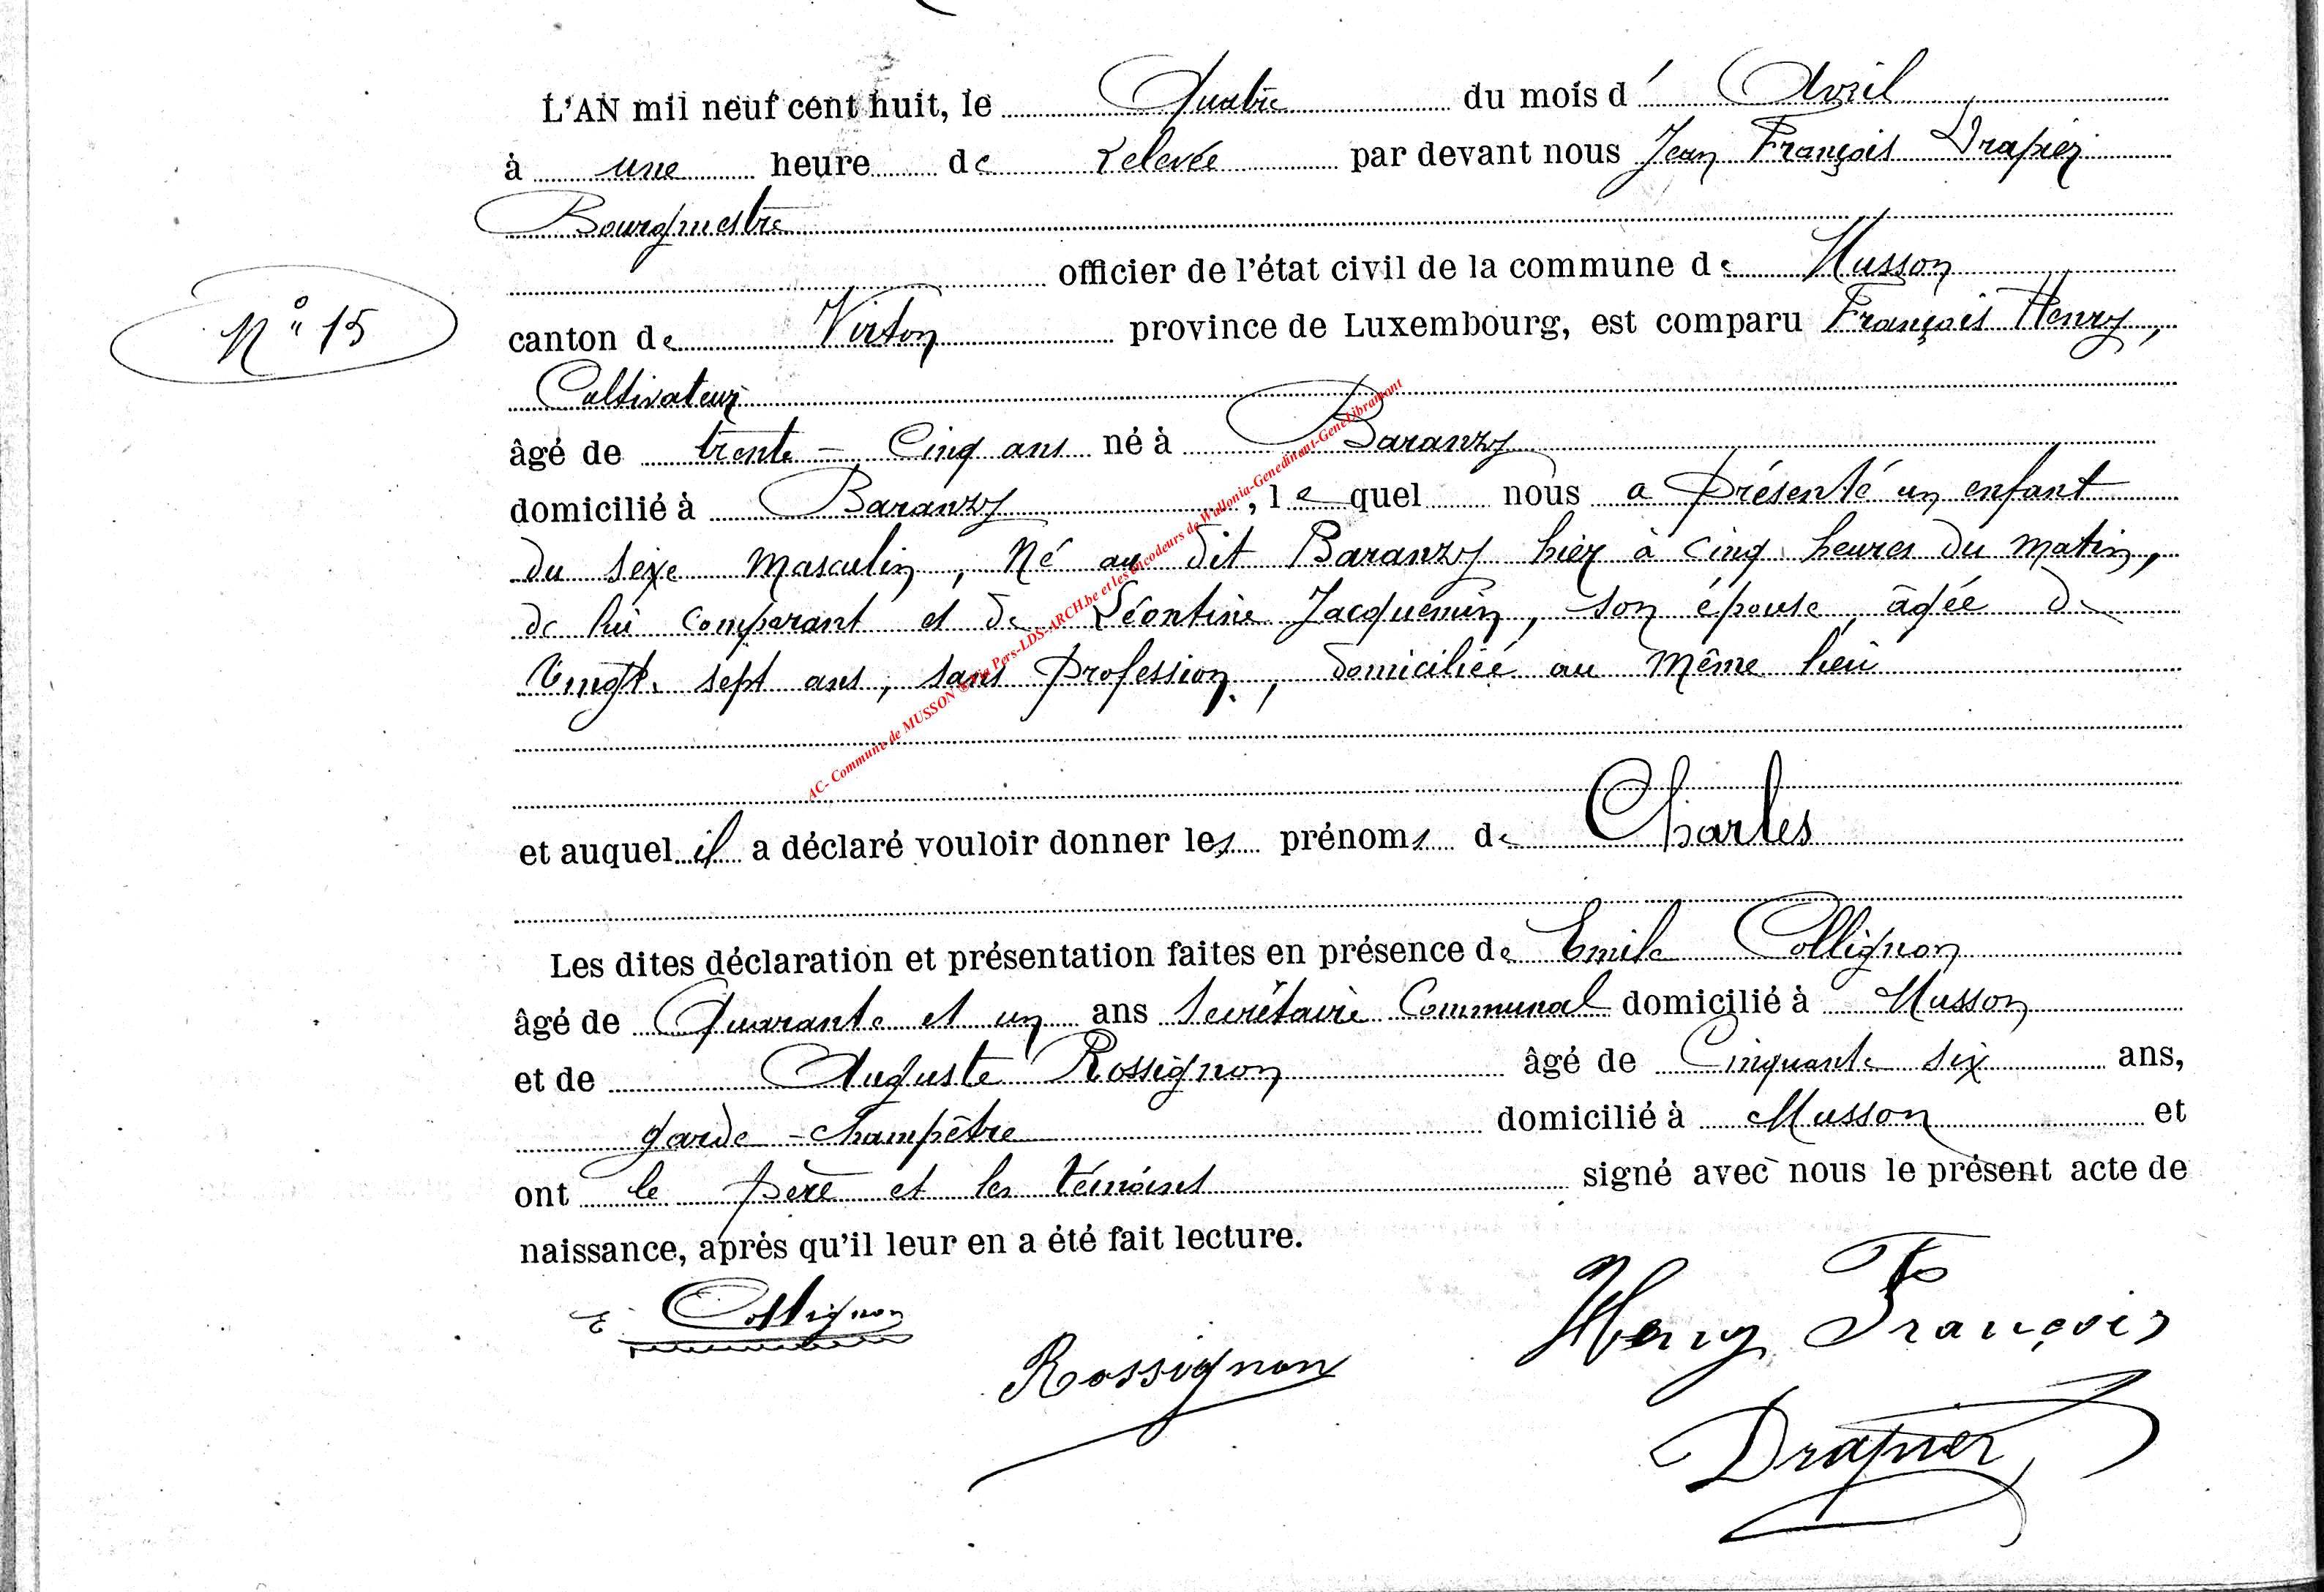 L'AN mil neuf cent huit, le Quatre du mois d' Avril
à une heure de relevée par devant nous Jean François Drapier
Bourgmestre
officier de l'état civil de la commune de Musson
N° 15
canton de Virton province de Luxembourg, est comparu François Henry,
Cultivateur
âgé de trente-cinq ans né à Baranzy
domicilié à Baranzy, lequel nous a présenté un enfant
du sexe masculin, né au dit Baranzy hier à cinq heures du matin,
de lui comparant et de Léontine Jacquemin, son épouse, âgée de
vingt sept ans, sans profession, domiciliée au même lieu
AC- Commune de MUSSON ® via Pers-LDS-ARCH.be et les encodeurs de Wallonia-Genedinant-GeneLibramont
et auquel il a déclaré vouloir donner les prénoms de Charles
Les dites déclaration et présentation faites en présence de Emile Collignon
âgé de Quarante et un ans Secrétaire Communal domicilié à Musson
et de Auguste Rossignon âgé de Cinquante six ans,
garde-champêtre domicilié à Musson et
ont le père et les témoins signé avec nous le présent acte de
naissance, après qu'il leur en a été fait lecture.
E. Collignon
Rossignon
Henry François
Drapier